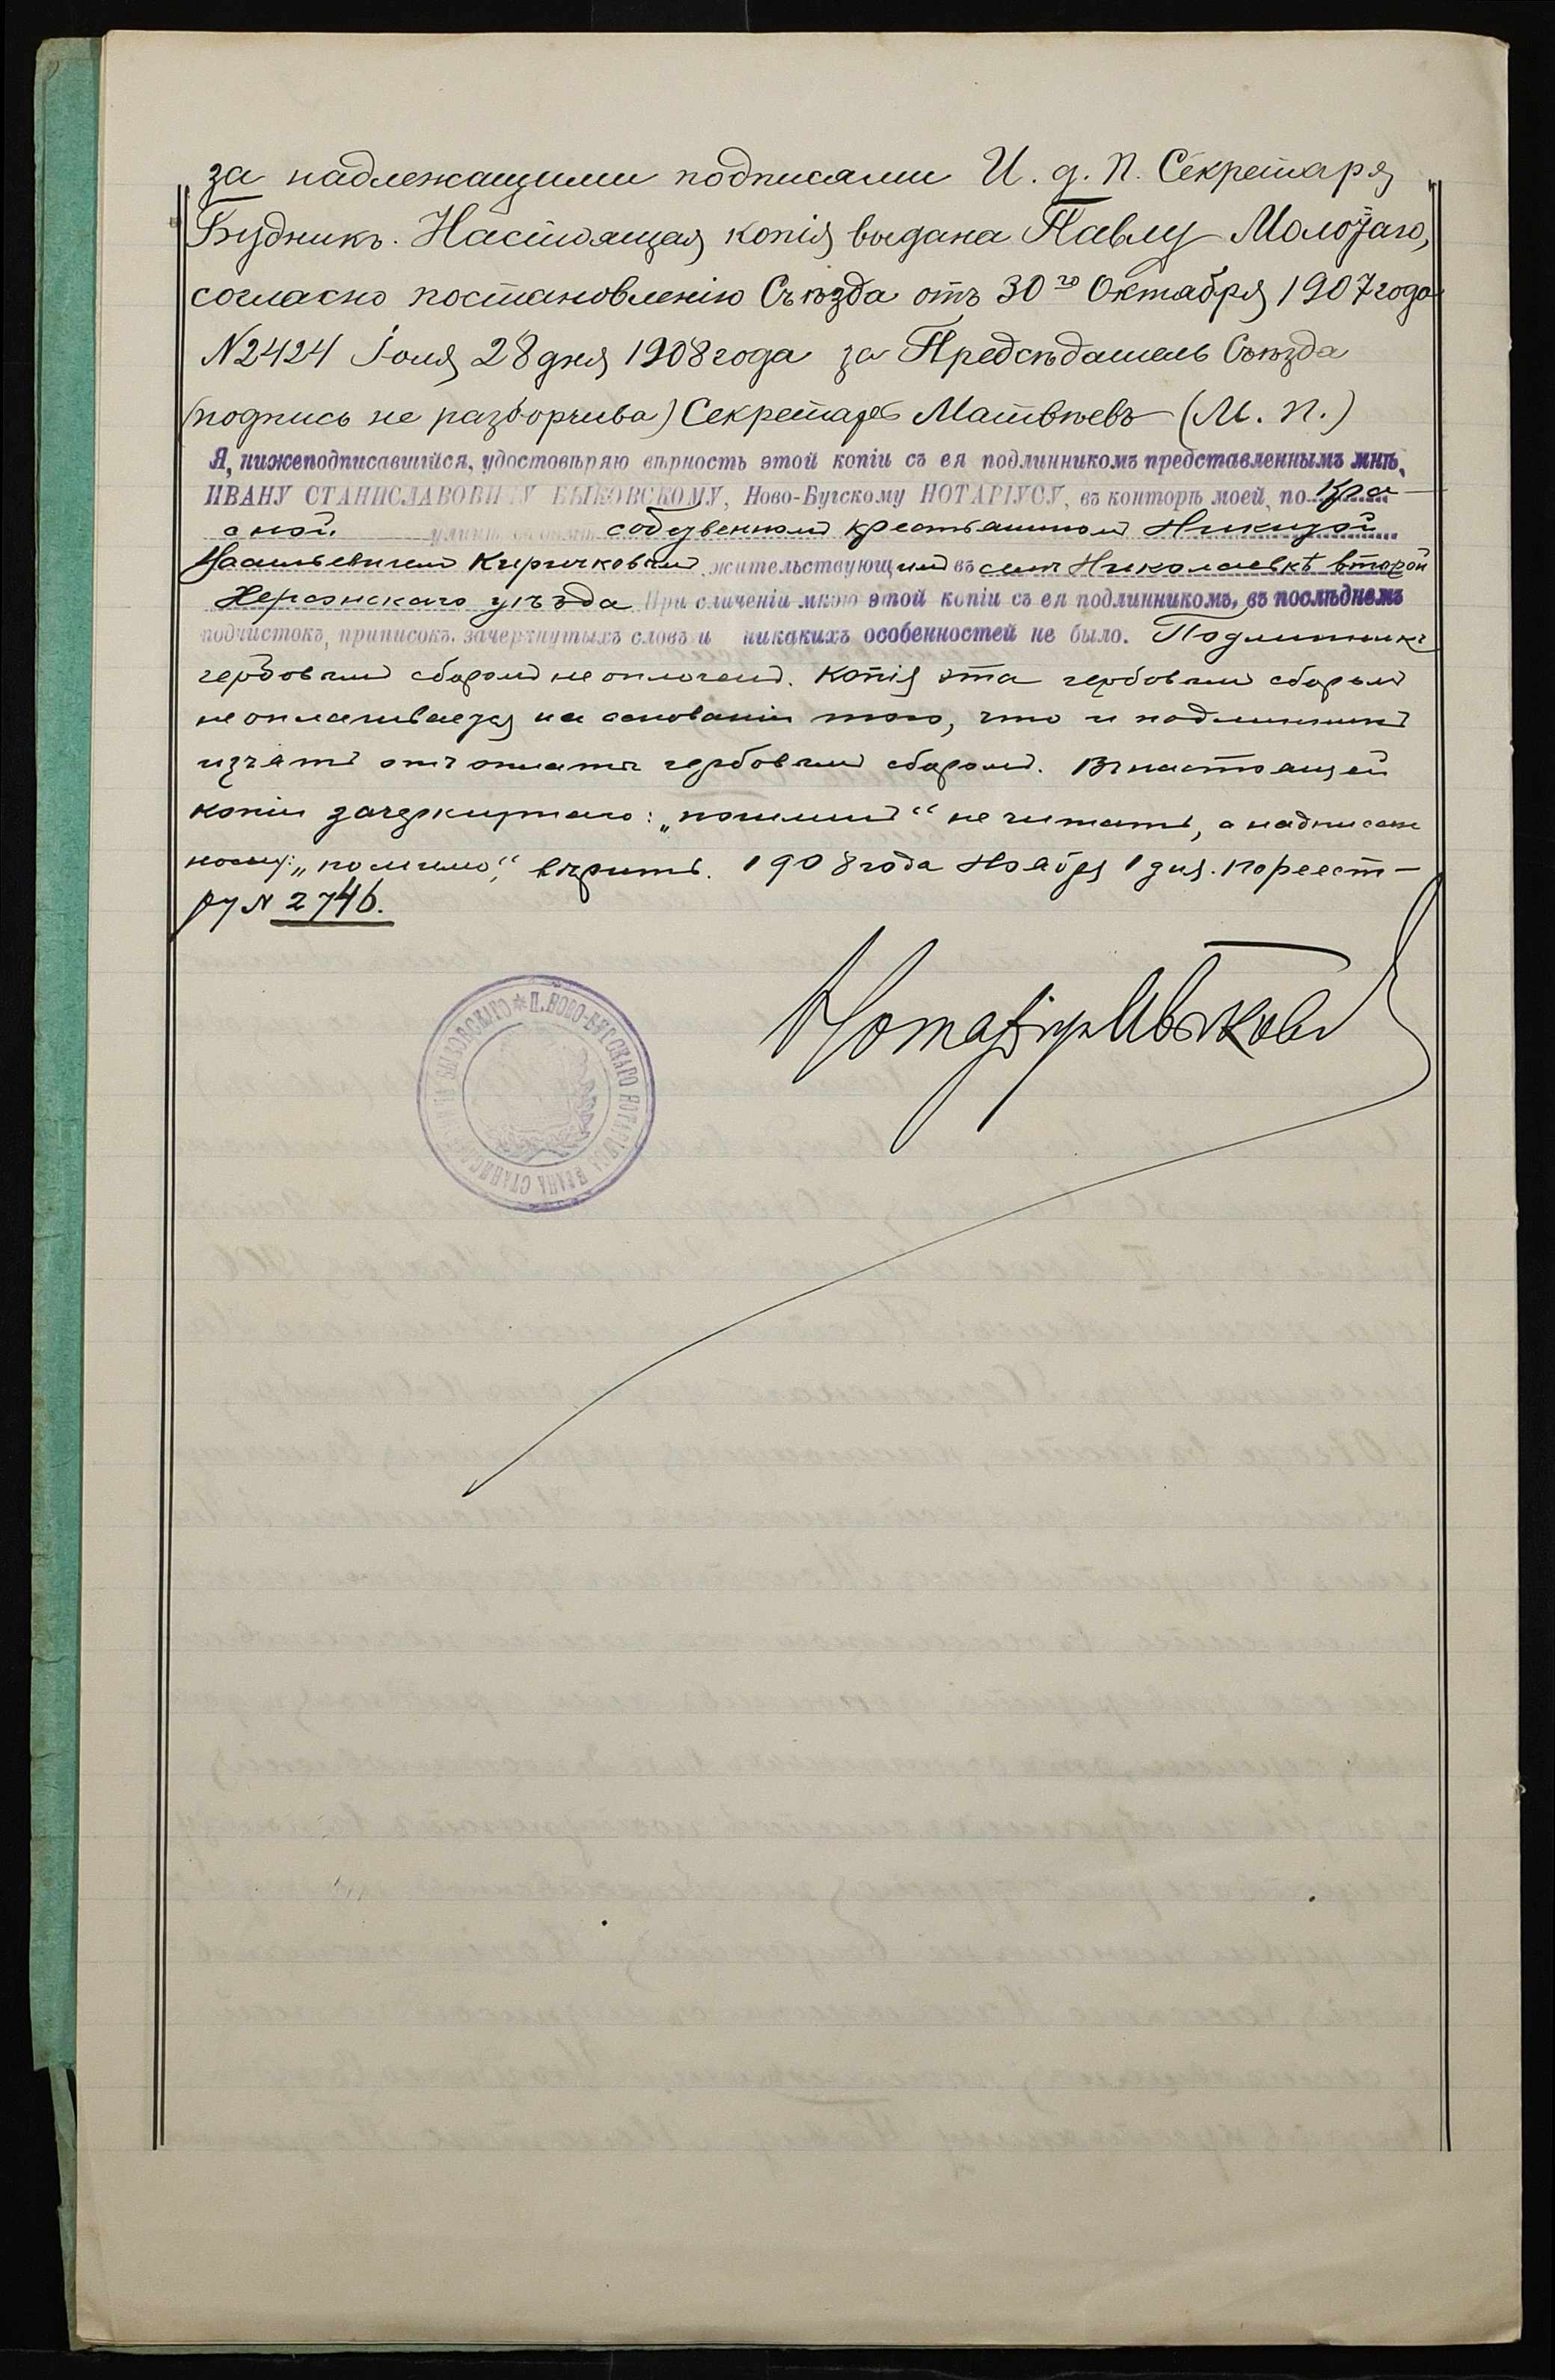 за надлежащими подписями И. д. П. Секретаря
Будникъ. Настоящая копія выдана Павлу Молочаго,
согласно постановленію Съѣзда отъ 30го Октября 1907 года
N 2424 Іюля 28 дня 1908 года за Предсѣдатель Съѣзда
(подпись не разборчива) Секретарь Матвѣевъ (М. П.)
Я, нижеподписавшійся, удостовѣряю вѣрность этой копіи съ ея подлинникомъ представленнымъ мнѣ,
ИВАНУ СТАНИСЛАВОВИЧУ БЫКОВСКОМУ, Ново-Бугскому НОТАРІУСУ, въ конторѣ моей, по Кра-
сной улицѣ собственном крестьянином Никитой
Васильевичем Киричковым, жительствующим въ селѣ Николаевкѣ второй
Херсонскаго уѣзда При сличеніи мною этой копіи съ ея подлинникомъ, въ послѣднемъ
подчистокъ, приписокъ, зачеркнутыхъ словъ и никакихъ особенностей не было. Подлинникъ
гербовымъ сборомъ не оплоченъ. Копія эта гербовымъ сборомъ
не оплачивается на основаніи того, что и подлинникъ
изъятъ отъ оплаты гербовымъ сборомъ. Въ настоящей
копіи зачеркнутаго: „ не читать, а надписан
ному: „помимо", вѣрить. 1908 года Ноября 1 дня. По реест-
ру N 2746.
Нотаріусъ Быковскій
* П. НОВО-БУГСКАГО НОТАРІУСА ИВАНА СТАНИСЛАВОВИЧА БЫКОВСКАГО